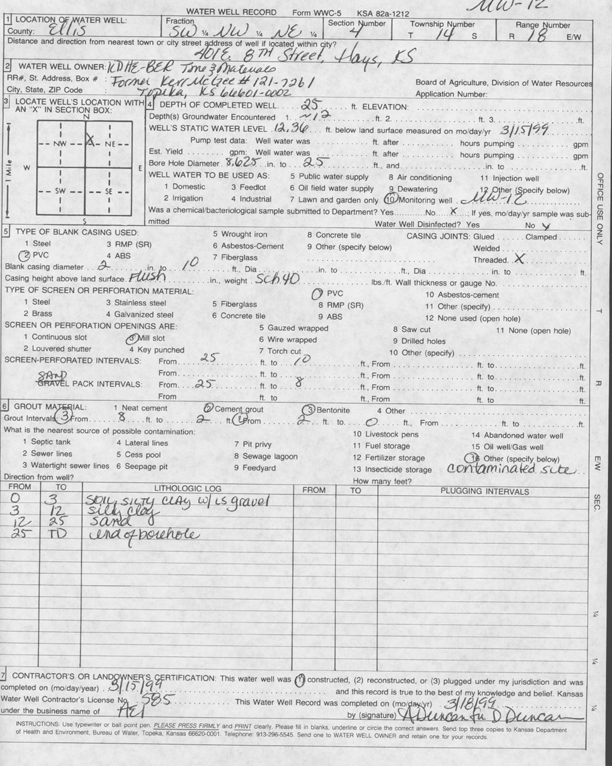 MW-12
WATER WELL RECORD Form WWC-5 KSA 82a-1212
1 LOCATION OF WATER WELL: Fraction Section Number Township Number Range Number
County: Ellis SW ¼ NW ¼ NE ¼ 4 T 14 S R 18 E/W
Distance and direction from nearest town or city street address of well if located within city?
401 E. 8TH Street, Hays, KS
2 WATER WELL OWNER: KDHE-BER Tone Materials
RR#, St. Address, Box # : Former Kerr McGee # 121-7261 Board of Agriculture, Division of Water Resources
City, State, ZIP Code : Topeka, KS 66601-0002 Application Number:
3 LOCATE WELL'S LOCATION WITH AN "X" IN SECTION BOX:
N
NW NE
W E
SW SE
S
1 Mile
X
4 DEPTH OF COMPLETED WELL 25 ft. ELEVATION:
Depth(s) Groundwater Encountered 1. ~12 ft. 2. ft. 3. ft.
WELL'S STATIC WATER LEVEL 12.36 ft. below land surface measured on mo/day/yr 3/15/99
Pump test data: Well water was ft. after hours pumping gpm
Est. Yield gpm: Well water was ft. after hours pumping gpm
Bore Hole Diameter 8.625 in. to 25 ft., and in. to ft.
WELL WATER TO BE USED AS: 5 Public water supply 8 Air conditioning 11 Injection well
1 Domestic 3 Feedlot 6 Oil field water supply 9 Dewatering 12 Other (Specify below)
2 Irrigation 4 Industrial 7 Lawn and garden only 10 Monitoring well MW-12
Was a chemical/bacteriological sample submitted to Department? Yes No X If yes, mo/day/yr sample was sub-
mitted Water Well Disinfected? Yes No X
5 TYPE OF BLANK CASING USED: 5 Wrought iron 8 Concrete tile CASING JOINTS: Glued Clamped
1 Steel 3 RMP (SR) 6 Asbestos-Cement 9 Other (specify below) Welded
2 PVC 4 ABS 7 Fiberglass Threaded X
Blank casing diameter 2 in. to 10 ft., Dia in. to ft., Dia in. to ft.
Casing height above land surface Flush in., weight Sch 40 lbs./ft. Wall thickness or gauge No.
TYPE OF SCREEN OR PERFORATION MATERIAL: 7 PVC 10 Asbestos-cement
1 Steel 3 Stainless steel 5 Fiberglass 8 RMP (SR) 11 Other (specify)
2 Brass 4 Galvanized steel 6 Concrete tile 9 ABS 12 None used (open hole)
SCREEN OR PERFORATION OPENINGS ARE: 5 Gauzed wrapped 8 Saw cut 11 None (open hole)
1 Continuous slot 3 Mill slot 6 Wire wrapped 9 Drilled holes
2 Louvered shutter 4 Key punched 7 Torch cut 10 Other (specify)
SCREEN-PERFORATED INTERVALS: From 25 ft. to 10 ft., From ft. to ft.
From ft. to ft., From ft. to ft.
SAND
GRAVEL PACK INTERVALS: From 25 ft. to 8 ft., From ft. to ft.
From ft. to ft., From ft. to ft.
6 GROUT MATERIAL: 1 Neat cement 2 Cement grout 3 Bentonite 4 Other
Grout Intervals 3 From 8 ft. to 2 ft. 2 From 2 ft. to 0 ft., From ft. to ft.
What is the nearest source of possible contamination: 10 Livestock pens 14 Abandoned water well
1 Septic tank 4 Lateral lines 7 Pit privy 11 Fuel storage 15 Oil well/Gas well
2 Sewer lines 5 Cess pool 8 Sewage lagoon 12 Fertilizer storage 16 Other (specify below)
3 Watertight sewer lines 6 Seepage pit 9 Feedyard 13 Insecticide storage contaminated site
Direction from well? How many feet?
FROM TO LITHOLOGIC LOG FROM TO PLUGGING INTERVALS
0 3 soil, silty clay w/ ls gravel
3 12 silty clay
12 25 sand
25 TD end of borehole
7 CONTRACTOR'S OR LANDOWNER'S CERTIFICATION: This water well was (1) constructed, (2) reconstructed, or (3) plugged under my jurisdiction and was
completed on (mo/day/year) 3/15/99 and this record is true to the best of my knowledge and belief. Kansas
Water Well Contractor's License No. 585 This Water Well Record was completed on (mo/day/yr) 3/18/99
under the business name of AEI by (signature) A Duncan for D Duncan
INSTRUCTIONS: Use typewriter or ball point pen. PLEASE PRESS FIRMLY and PRINT clearly. Please fill in blanks, underline or circle the correct answers. Send top three copies to Kansas Department
of Health and Environment, Bureau of Water, Topeka, Kansas 66620-0001. Telephone: 913-296-5545. Send one to WATER WELL OWNER and retain one for your records.
OFFICE USE ONLY
T
R
E/W
SEC.
¼
¼
¼